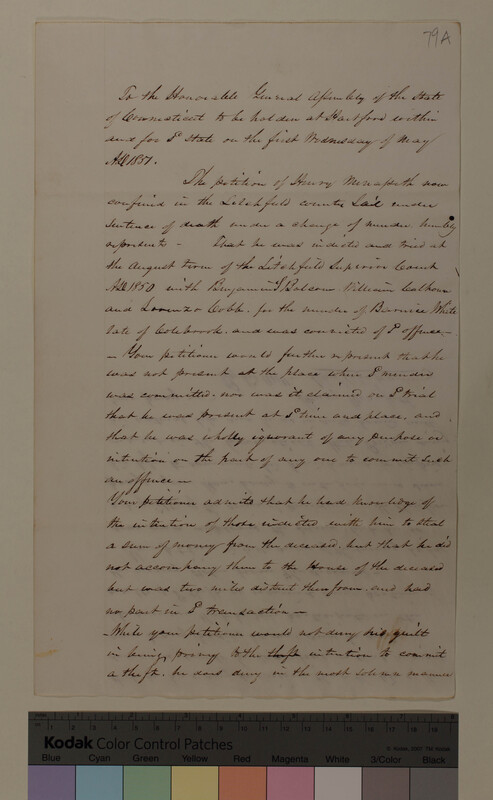 79A
To the Honorable General Assembly of the State
of Connecticut to be holden at Hartford within
and for Sd State on the first Wednesday of May
AD 1851.
The petition of Henry Manasseth now
confined in the Litchfield county Jail under
sentence of death under a charge of murder humbly
represents – That he was indicted and tried at
the August term of the Litchfield Superior Court
AD 1850 with Benjamin Balcom, William Calhoun
and Lorenzo Cobb, for the murder of Barnice White
late of Colebrook, and was convicted of Sd offence –
– Your petitioner would further represent that he
was not present at the place when Sd murder
was committed, nor was it claimed on Sd trial
that he was present at Sd time and place, and
that he was wholly ignorant of any purpose or
intention on the part of any one to commit such
an offence –
Your petitioner admits that he had knowledge of
the intention of those indicted with him to steal
a sum of money from the deceased, but that he did
not accompany them to the House of the deceased
but was two miles distant therefrom and had
no part in Sd transaction –
While your petitioner would not deny his guilt
in being privy to the theft intention to commit
a theft, he does deny in the most solemn manner
Kodak Color Control Patches
© Kodak, 2007 TM: Kodak
Blue Cyan Green Yellow Red Magenta White 3/Color Black